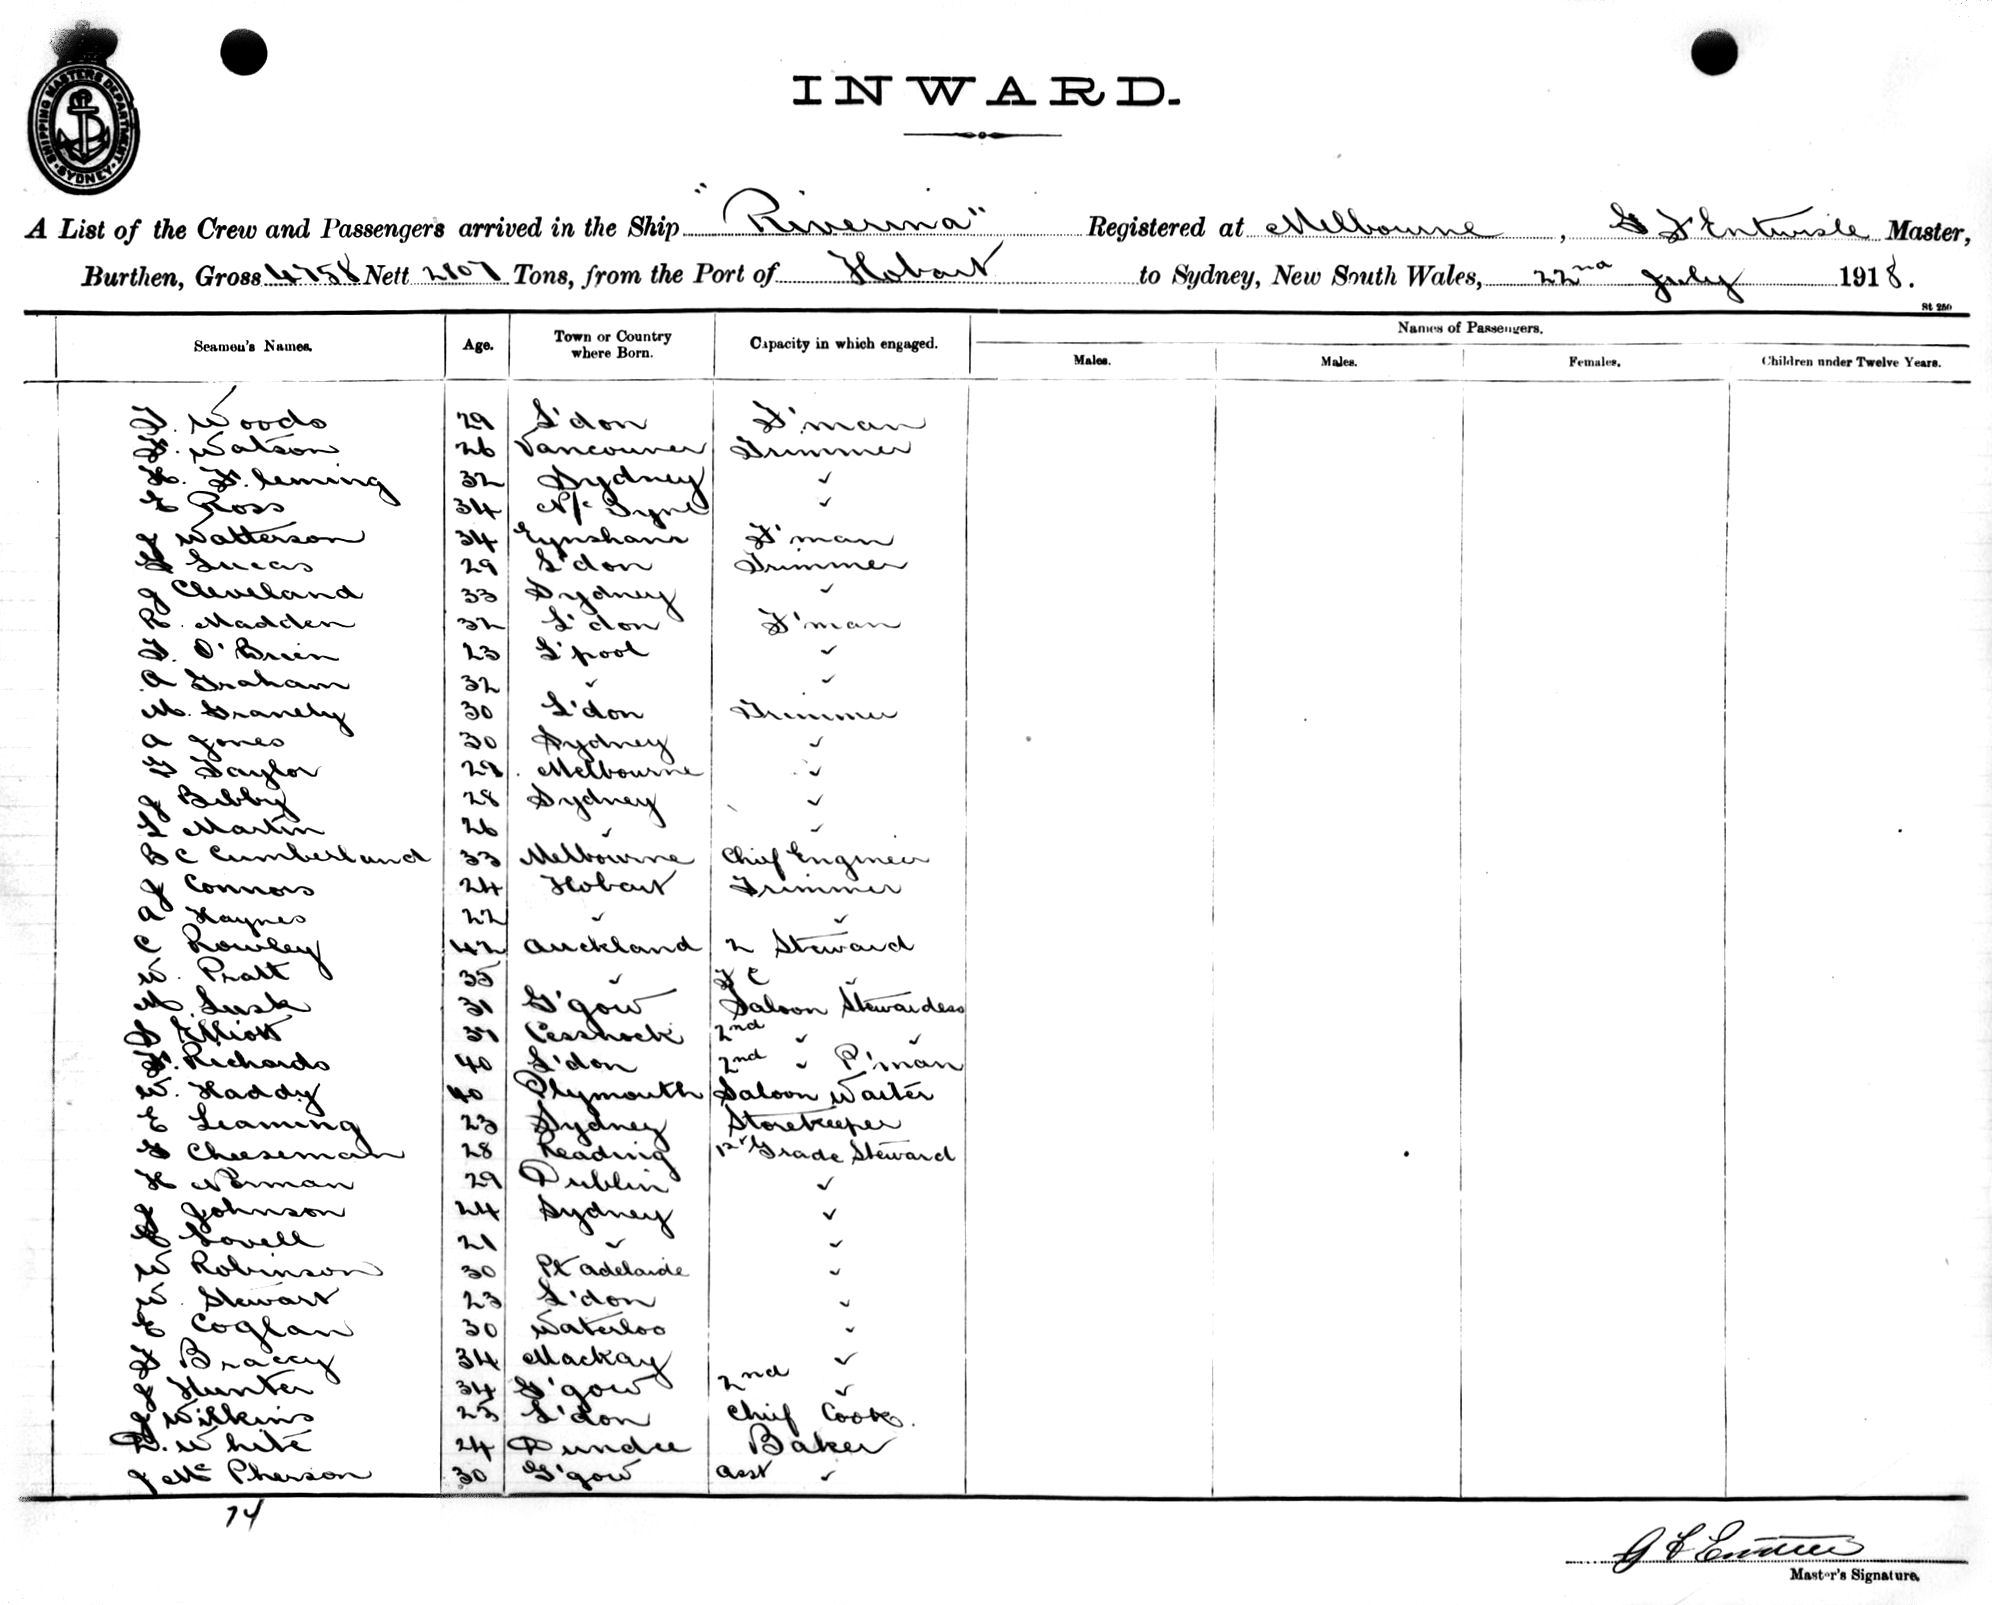 SHIPPING MASTERS DEPARTMENT
SYDNEY
INWARD.
A List of the Crew and Passengers arrived in the Ship "Riverina" Registered at Melbourne, G F Entwisle Master,
Burthen, Gross 4758 Nett 2107 Tons, from the Port of Hobart to Sydney, New South Wales, 22nd July 1918.
St 250
Seamen's Names. Age. Town or Country where Born. Capacity in which engaged. Names of Passengers.
Males. Males. Females. Children under Twelve Years.
Woods 29 L'don F'man
Watson 26 Vancouver Trimmer
H. Fleming 32 Sydney ✓
E Ross 34 N/c Tyne ✓
J Watterson 34 Eynsham F'man
Lucas 29 L'don Trimmer
J Cleveland 33 Sydney ✓
R. Madden 32 L'don F'man
T. O'Brien 23 L'pool ✓
A Graham 32 ✓ ✓
M. 30 L'don Trimmer
A Jones 30 Sydney ✓
Taylor 29 Melbourne ✓
J Bibby 28 Sydney ✓
L Martin 26 ✓ ✓
B C Cumberland 33 Melbourne Chief Engineer
J Connors 24 Hobart Trimmer
A Haynes 22 ✓ ✓
C Rowley 42 Auckland 2 Steward
W. Pratt 35 ✓ F C ✓
M. Lusk 31 G'gow Saloon Stewardess
Elliott Cessnock 2nd ✓ ✓
F. Richards 40 L'don 2nd ✓ P'man
W. Haddy 40 Plymouth Saloon Waiter
E Leaming 23 Sydney Storekeeper
Cheeseman 28 Reading 1st Grade Steward
H Norman 29 Dublin ✓
J Johnson 24 Sydney ✓
Lovell 21 ✓ ✓
W Robinson 30 Pt Adelaide ✓
W. Stewart 23 L'don ✓
E Coglan 30 Waterloo ✓
Bracey 34 Mackay ✓
J Hunter 34 G'gow 2nd ✓
J Wilkins 23 L'don Chief Cook.
D. White 24 Dundee Baker
J McPherson 30 G'gow Asst ✓
74
Master's Signature.